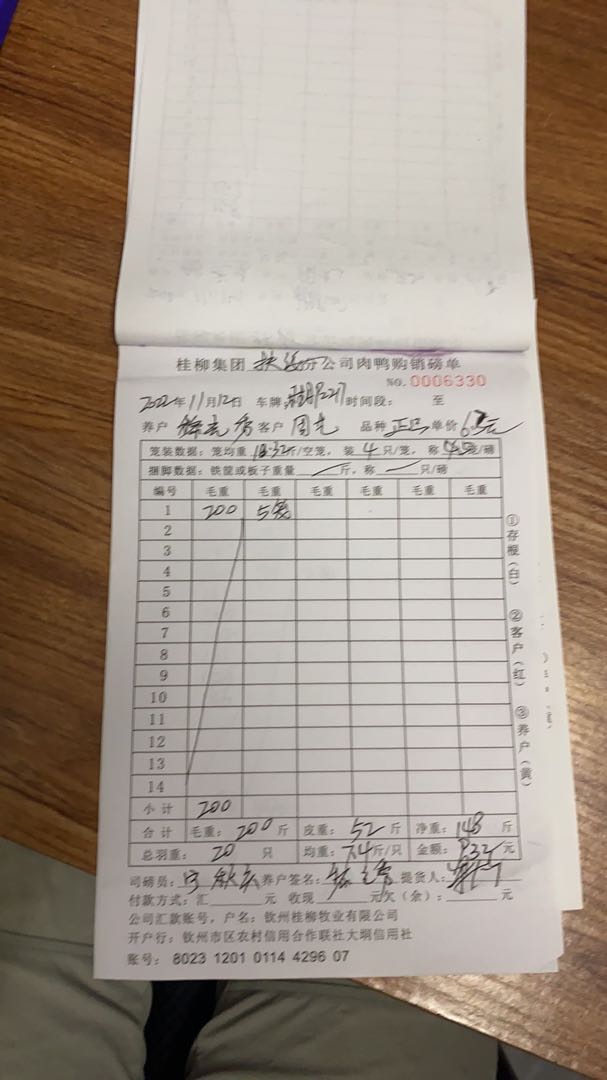 桂柳集团 分公司肉鸭购销磅单
NO.0006330
2022年11月12日 车牌: 时间段: 至
养户 客户 周光 品种 正品 单价 6.3元
笼装数据:笼均重 斤/空笼,装 4 只/笼,称 /磅
捆脚数据:铁筐或板子重量 斤,称 只/磅
编号 毛重 毛重 毛重 毛重 毛重 毛重
1 200 5笼
2
3
4
5
6
7
8
9
10
11
12
13
14
小计 200
合计 毛重:200斤 皮重:52斤 净重:148斤
总羽重:20只 均重:7.4斤/只 金额:932元
司磅员: 养户签名: 提货人:
付款方式:汇 元 收现 元欠(余): 元
公司汇款账号,户名:钦州桂柳牧业有限公司
开户行:钦州市区农村信用合作联社大垌信用社
账号:8023 1201 0114 4296 07
①存根(白)
②客户(红)
③养户(黄)